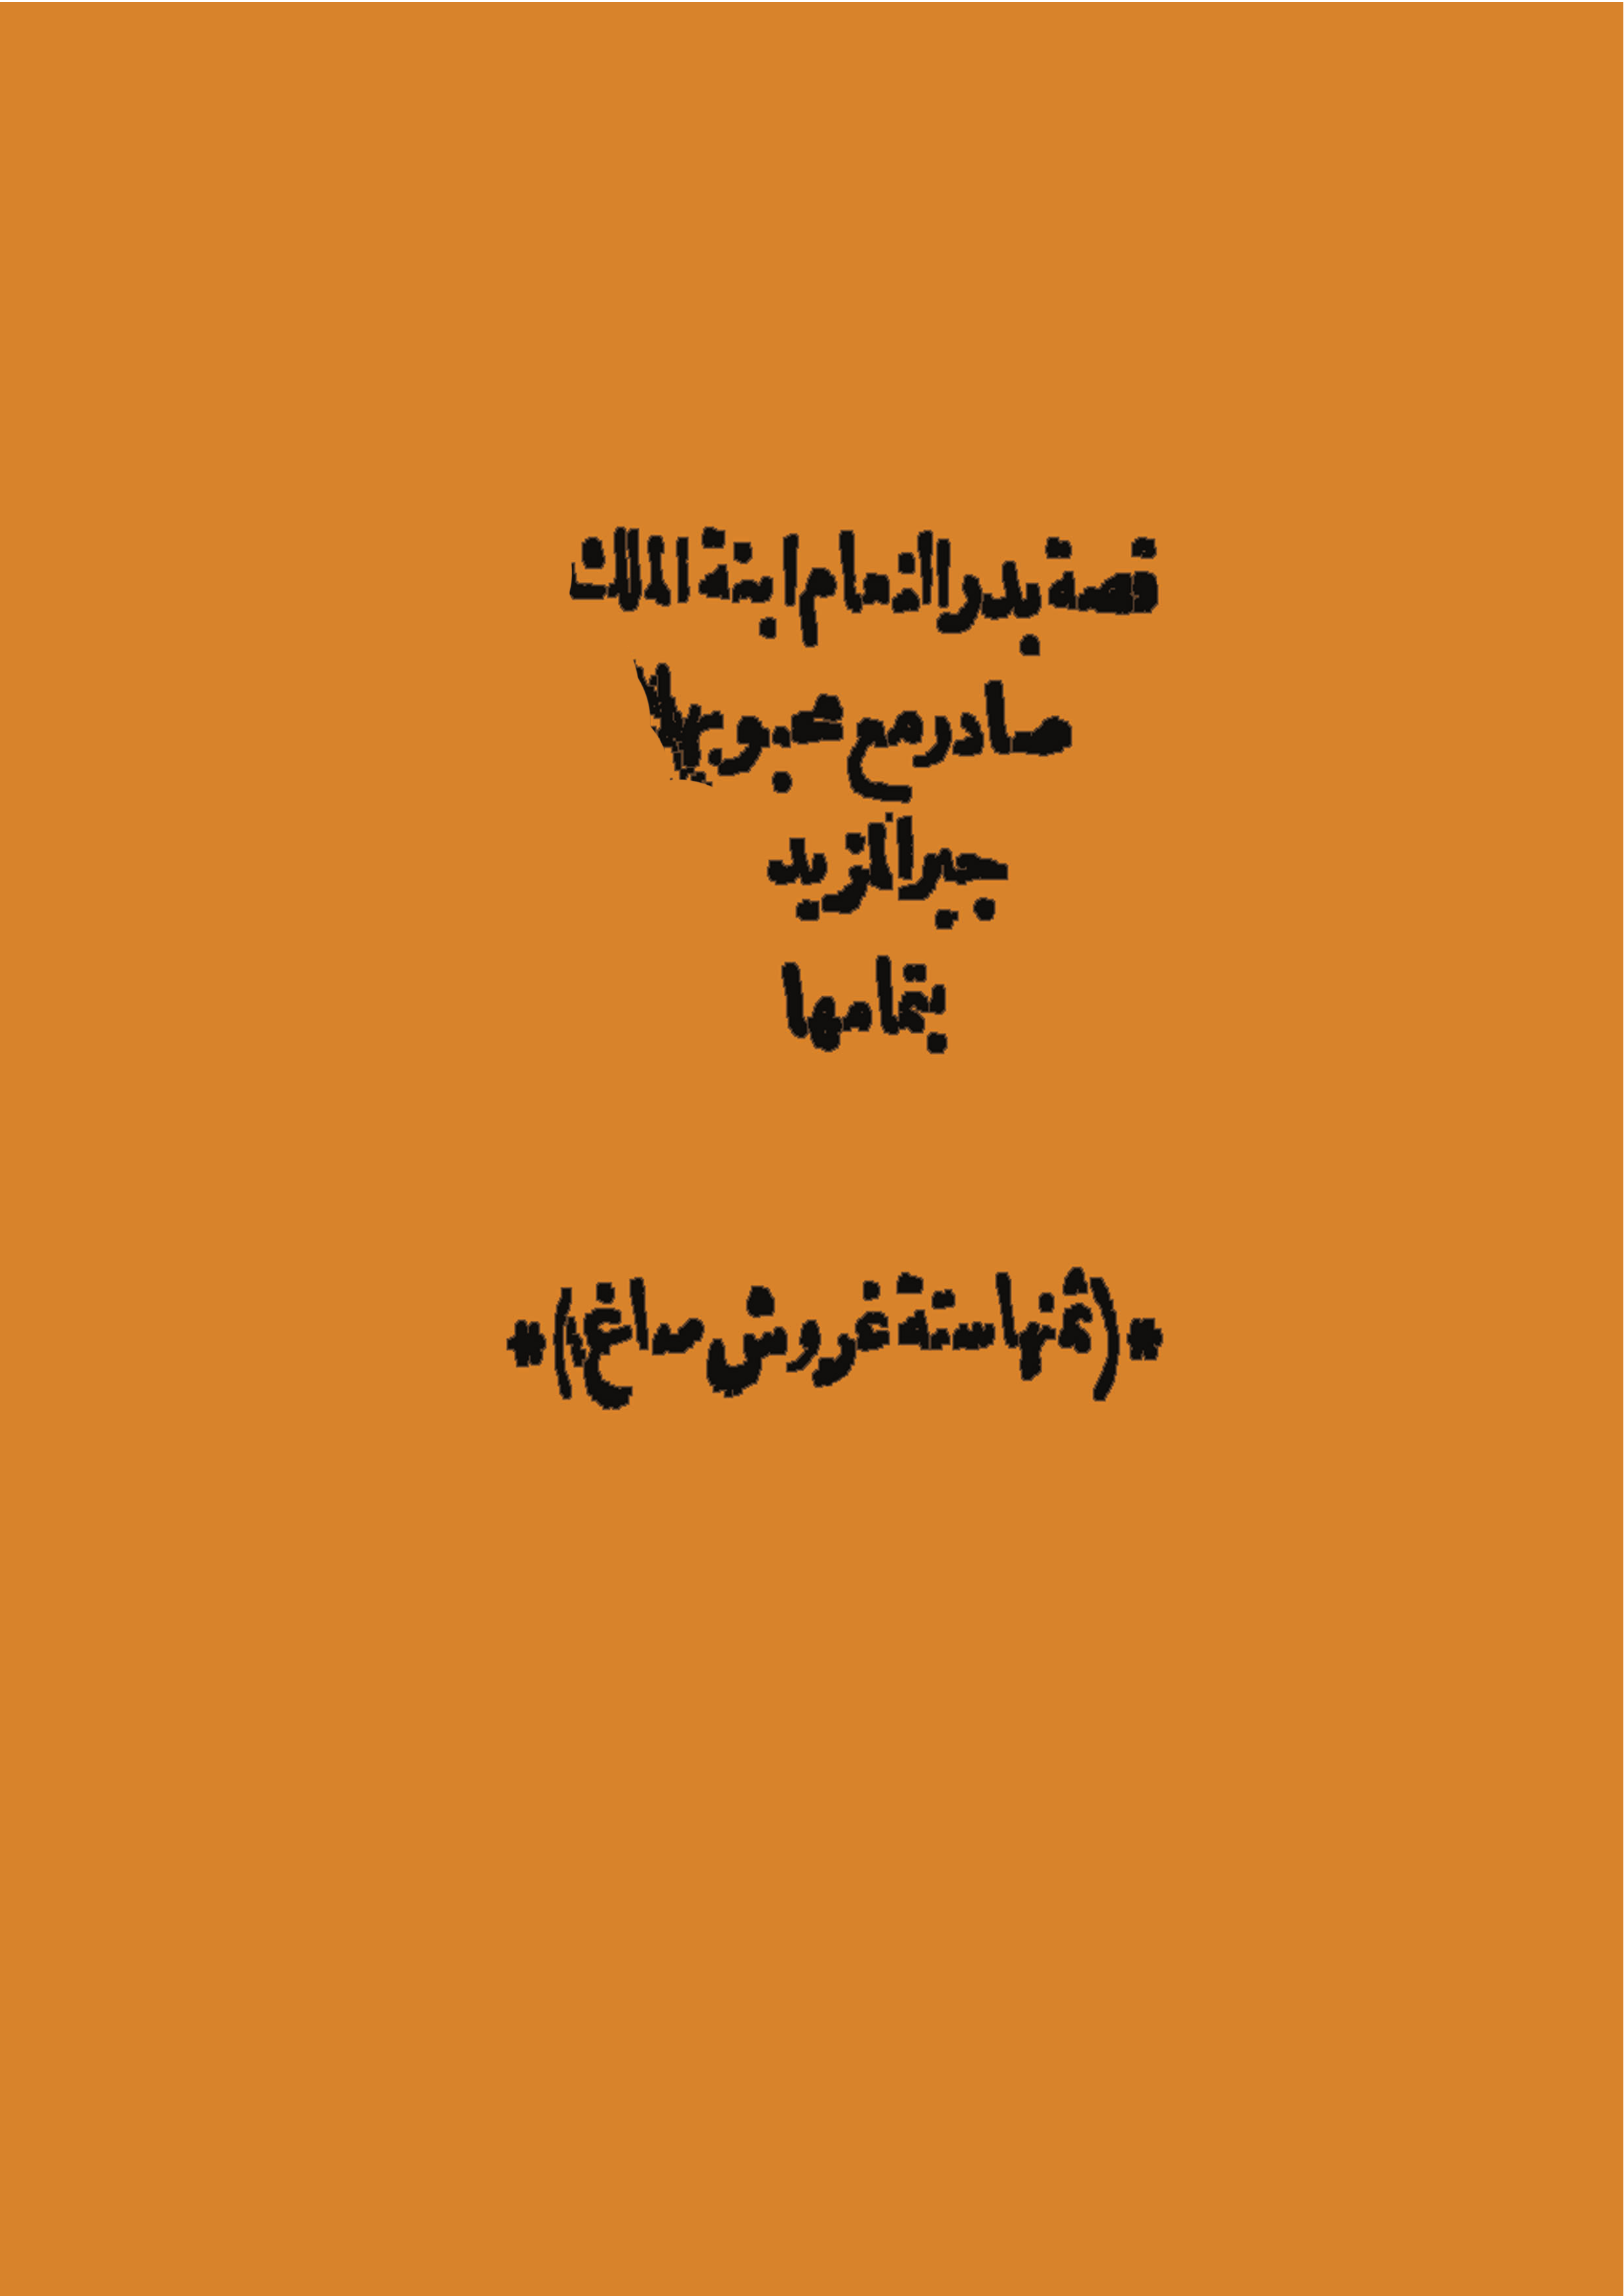 قصة بدر التمام ابنة الملك
صادر مع محبوبها
جبير المزيد
بتمامها
*(ثمنها ستة غروش صاغ)*